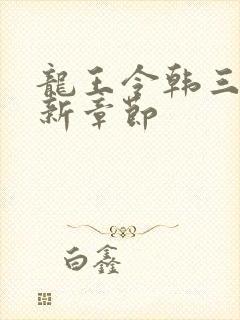 龍王令韩三
新章節
白鑫